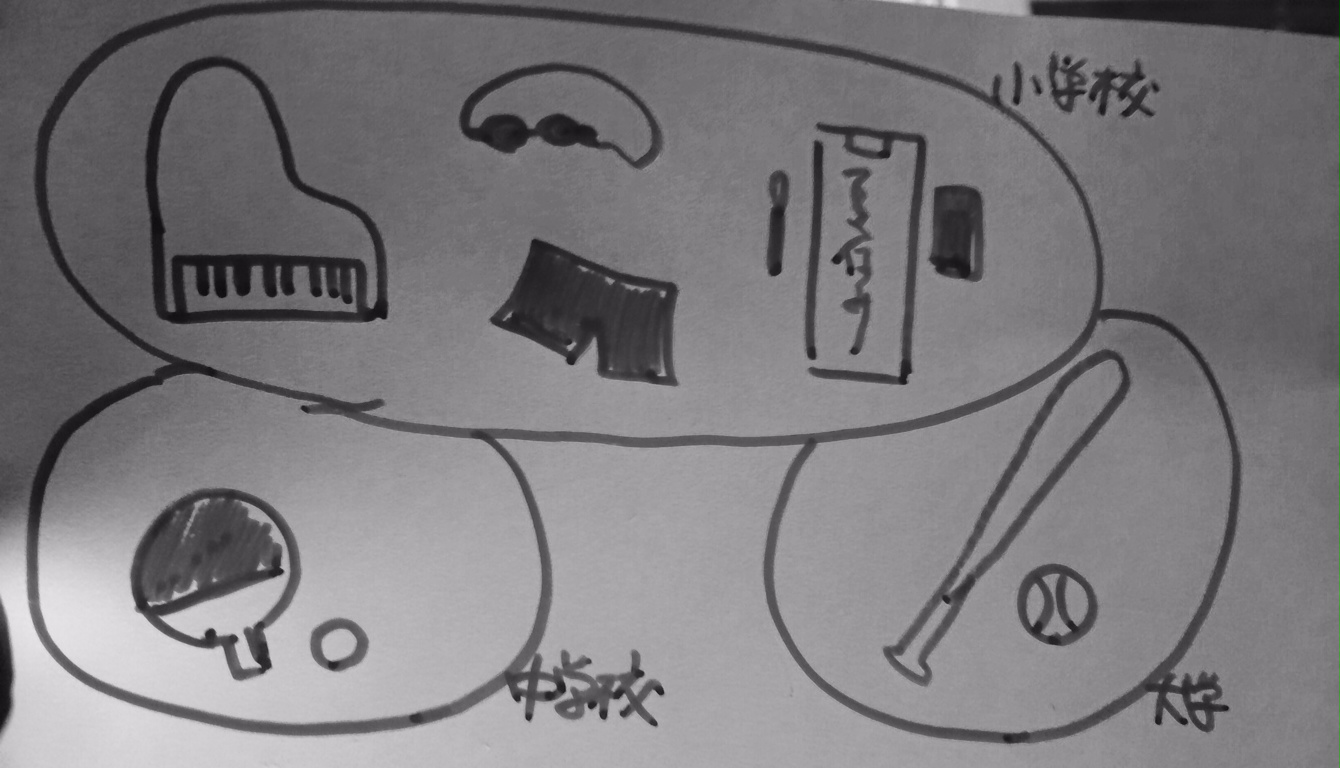 小学校
中学校
大学